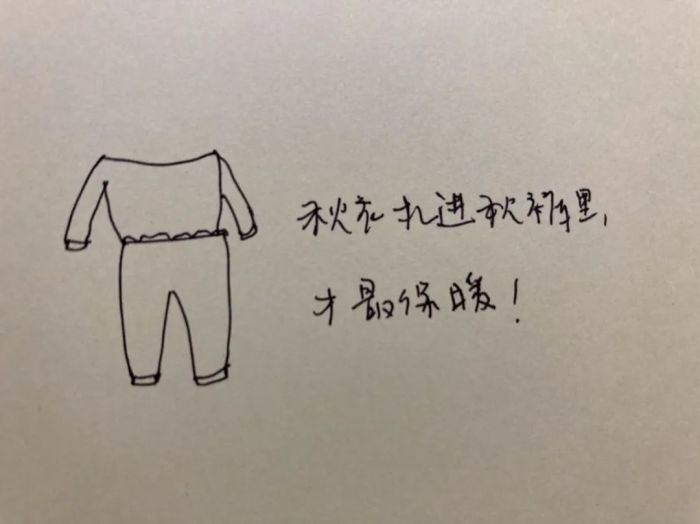 秋衣扎进秋裤里,
才最保暖!